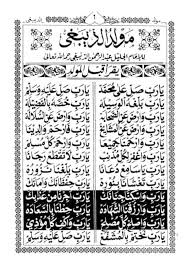 مولد الديبعي
للإمام الجليل عبد الرحمن الديبعي رحمه الله تعالى
يقرأ قبل المولد
يارب صل على محمد يارب صل عليه وسلم
يارب بلغه الوسيلة يارب خصه بالفضيلة
يارب وارض عن الصحابة يارب وارض عن السلالة
يارب وارض عن المشايخ يارب وارحم والدينا
يارب وارحمنا جميعا يارب وارحم كل مسلم
يارب واغفر لكل مذنب يارب لا تقطع رجانا
يارب يا سامع دعانا يارب بلغنا نزوره
يارب تغشانا بنوره يارب حفظانك وأمانك
يارب واسكنا جنانك يارب أجرنا من عذابك
يارب وارزقنا الشهادة يارب حطنا بالسعادة
يارب واصلح كل مصلح يارب واكف كل مؤذي
يارب نختم بالمشفع يارب صل عليه وسلم